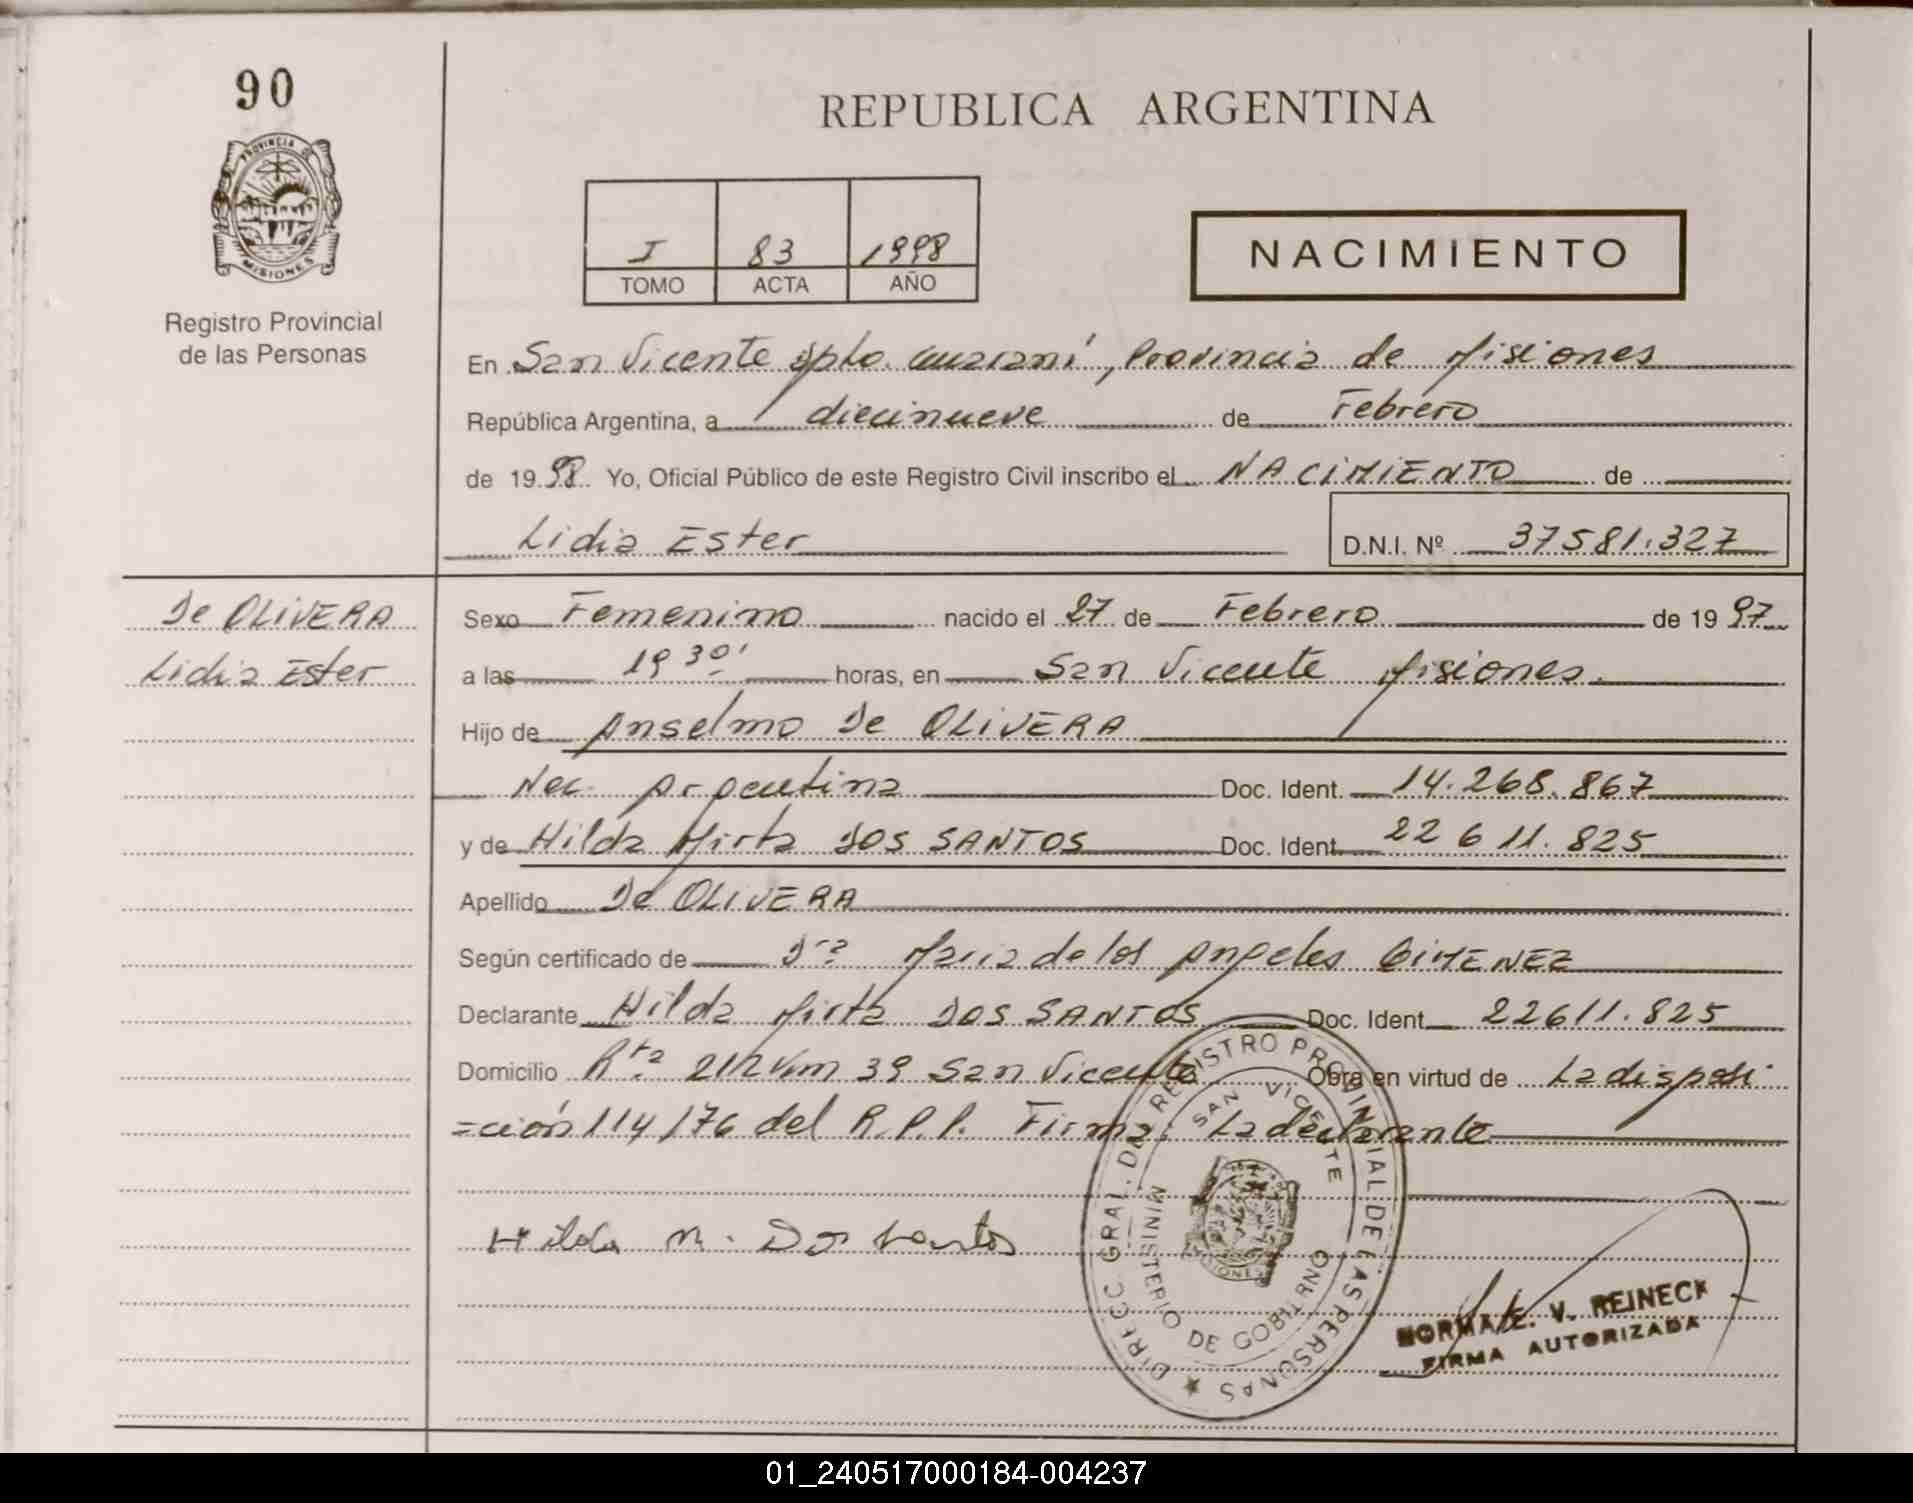 90
PROVINCIA DE
MISIONES
Registro Provincial
de las Personas
REPUBLICA ARGENTINA
I 83 1998
TOMO ACTA AÑO
NACIMIENTO
En San Vicente Dpto. Guaraní, Provincia de Misiones
República Argentina, a diecinueve de Febrero
de 1998 Yo, Oficial Público de este Registro Civil inscribo el NACIMIENTO de
Lidia Ester D.N.I. Nº 37581.327
De OLIVERA
Lidia Ester
Sexo Femenino nacido el 27 de Febrero de 1997
a las 19 30' horas, en San Vicente Misiones.
Hijo de Anselmo De OLIVERA
Nac. Argentina Doc. Ident. 14.268.867
y de Hilda Mirta DOS SANTOS Doc. Ident. 22 611.825
Apellido De OLIVERA
Según certificado de Dra Maria de los Angeles GIMENEZ
Declarante Hilda Mirta DOS SANTOS Doc. Ident. 22611.825
Domicilio Rta 212 Km 39 San Vicente Obra en virtud de La disposi
=ción 114/76 del R.P.P. Firma: La declarante
Hilda M. Dos Santos
DIRECC. GRAL. DEL REGISTRO PROVINCIAL DE LAS PERSONAS
SAN VICENTE
MINISTERIO DE GOBIERNO
MISIONES
NORMA E. V. REINECK
FIRMA AUTORIZADA
01_240517000184-004237